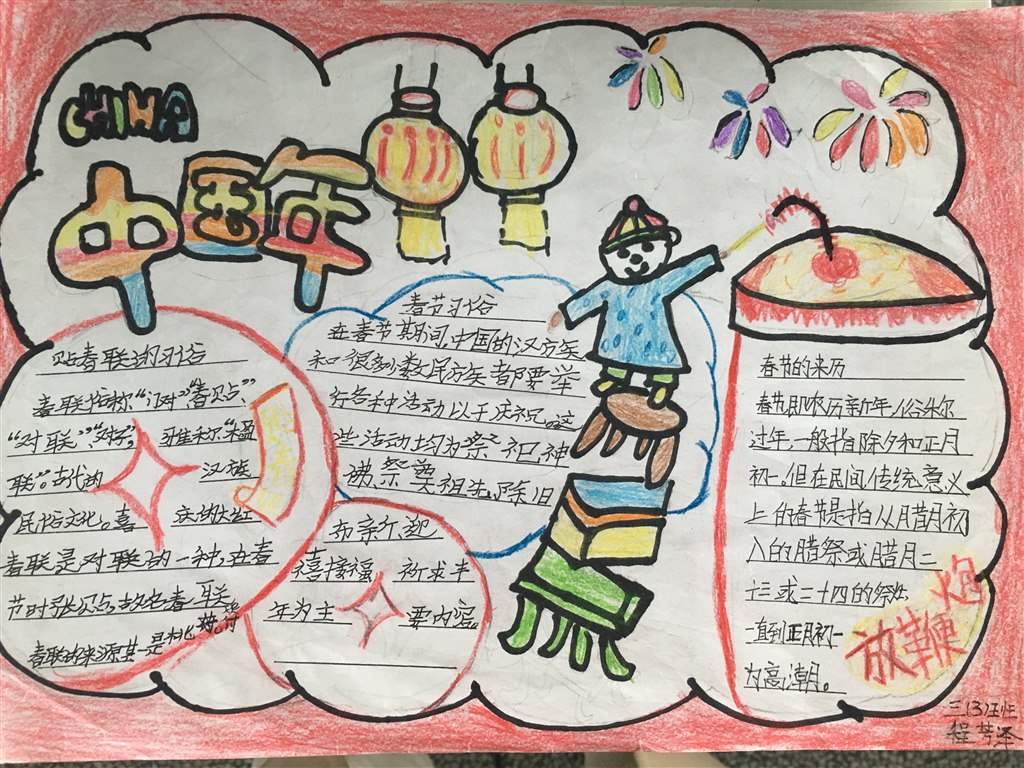 CHINA
中国年
贴春联的习俗
春联指称“门对”“春贴”、
“对联”、“对子”，雅称“楹
联”。古代汉族
民俗文化。喜庆的大红
春联是对联的一种，在春
节时张贴，故名春联。
春联的来源其一是桃符
春节习俗
在春节期间，中国的汉方族
和很多少数民方族都要举
行各种活动以于庆祝。这
些活动均为祭祀神
佛、祭奠祖先、除旧
布亲尔、迎
禧接福、祈求丰
年为主要内容。
春节的来历
春节即农历新年，俗称
过年，一般指除夕和正月
初一。但在民间，传统意义
上的春节是指从腊月初
八的腊祭或腊月二
十三或二十四的祭灶
一直到正月初一
为高潮。
放鞭炮
三(3)班
程芳泽